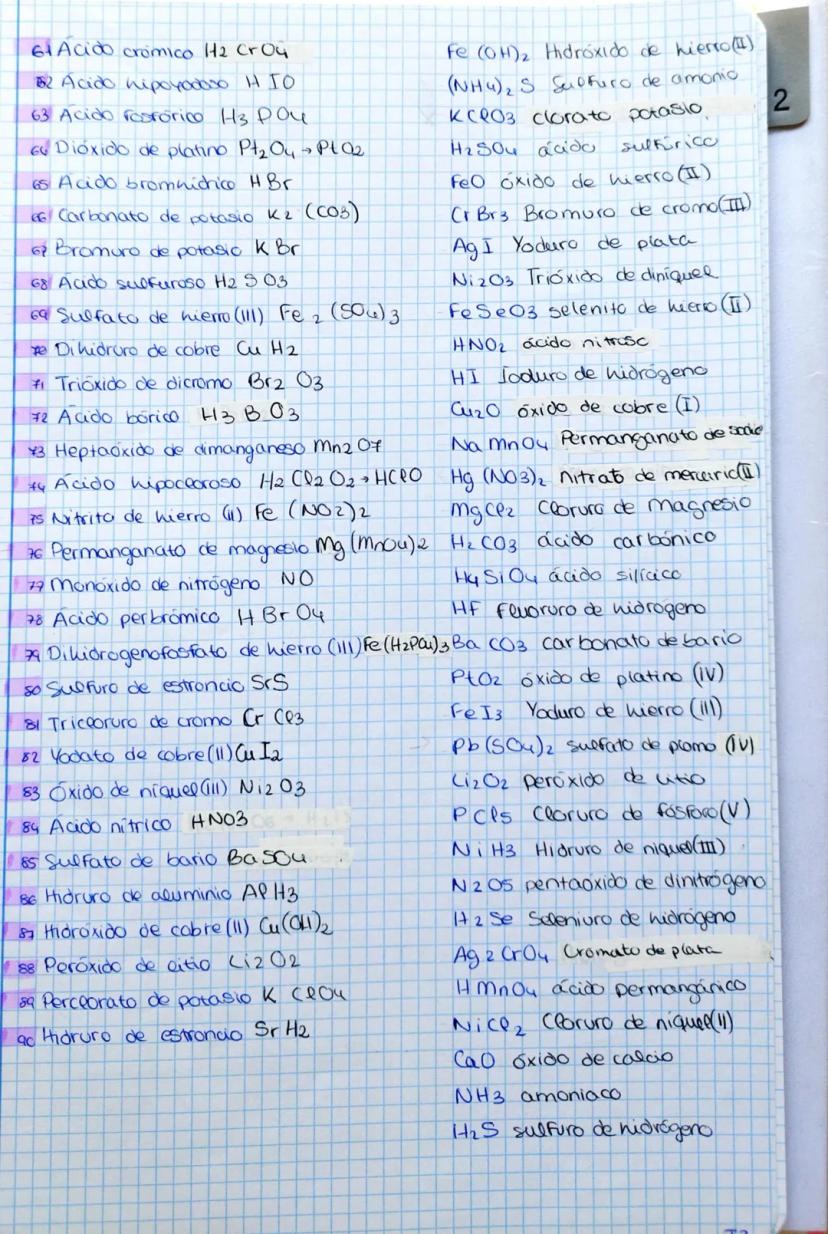 61 Ácido crómico H2 CrO4
62 Ácido hipoyodoso H IO
63 Ácido fosfórico H3 PO4
64 Dióxido de platino Pt2O4 → PtO2
65 Ácido bromhídrico H Br
66 Carbonato de potasio K2 (CO3)
67 Bromuro de potasio K Br
68 Ácido sulfuroso H2 SO3
69 Sulfato de hierro (III) Fe2 (SO4)3
70 Dihidruro de cobre Cu H2
71 Trióxido de dicromo Br2 O3
72 Ácido bórico H3 B O3
73 Heptaóxido de dimanganeso Mn2 O7
74 Ácido hipocloroso H2 Cl2 O2 → HClO
75 Nitrito de hierro (II) Fe (NO2)2
76 Permanganato de magnesio Mg (MnO4)2
77 Monóxido de nitrógeno NO
78 Ácido perbrómico H Br O4
79 Dihidrogenofosfato de hierro (III) Fe (H2PO4)3
80 Sulfuro de estroncio SrS
81 Tricloruro de cromo Cr Cl3
82 Yodato de cobre (II) Cu I2
83 Óxido de níquel (III) Ni2 O3
84 Ácido nítrico HNO3
85 Sulfato de bario Ba SO4
86 Hidruro de aluminio Al H3
87 Hidróxido de cobre (II) Cu(OH)2
88 Peróxido de litio Li2 O2
89 Perclorato de potasio K ClO4
90 Hidruro de estroncio Sr H2
Fe (OH)2 Hidróxido de hierro (II)
(NH4)2 S Sulfuro de amonio
K ClO3 clorato potasio
H2SO4 ácido sulfúrico
FeO óxido de hierro (II)
Cr Br3 Bromuro de cromo (III)
Ag I Yoduro de plata
Ni2O3 Trióxido de diníquel
Fe SeO3 selenito de hierro (II)
HNO2 ácido nitroso
HI Ioduro de hidrógeno
Cu2O óxido de cobre (I)
Na MnO4 Permanganato de sodio
Hg (NO3)2 nitrato de mercurio (II)
Mg Cl2 Cloruro de magnesio
H2 CO3 ácido carbónico
H4 SiO4 ácido silícico
HF fluoruro de hidrogeno
Ba CO3 carbonato de bario
PtO2 óxido de platino (IV)
Fe I3 Yoduro de hierro (III)
Pb (SO4)2 sulfato de plomo (IV)
Li2O2 peróxido de litio
P Cl5 Cloruro de fósforo (V)
Ni H3 Hidruro de níquel (III)
N2 O5 pentaóxido de dinitrógeno
H2 Se Seleniuro de hidrógeno
Ag2 CrO4 Cromato de plata
H MnO4 ácido permangánico
Ni Cl2 Cloruro de níquel (II)
CaO óxido de calcio
NH3 amoniaco
H2S sulfuro de hidrógeno
2